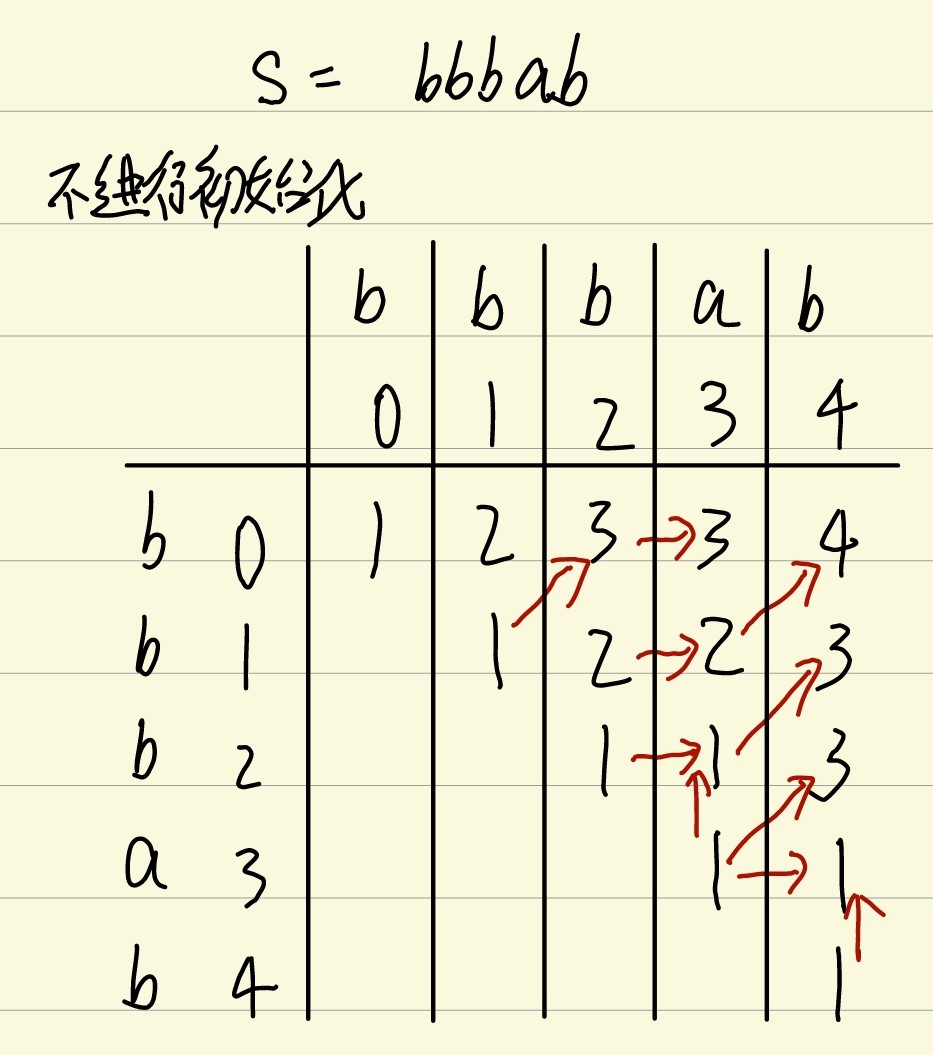 S = bbbab
不进行初始化
b b b a b
0 1 2 3 4
b 0 1 2 3 → 3 4
b 1 1 2 → 2 3
b 2 1 → 1 3
a 3 1 → 1
b 4 1